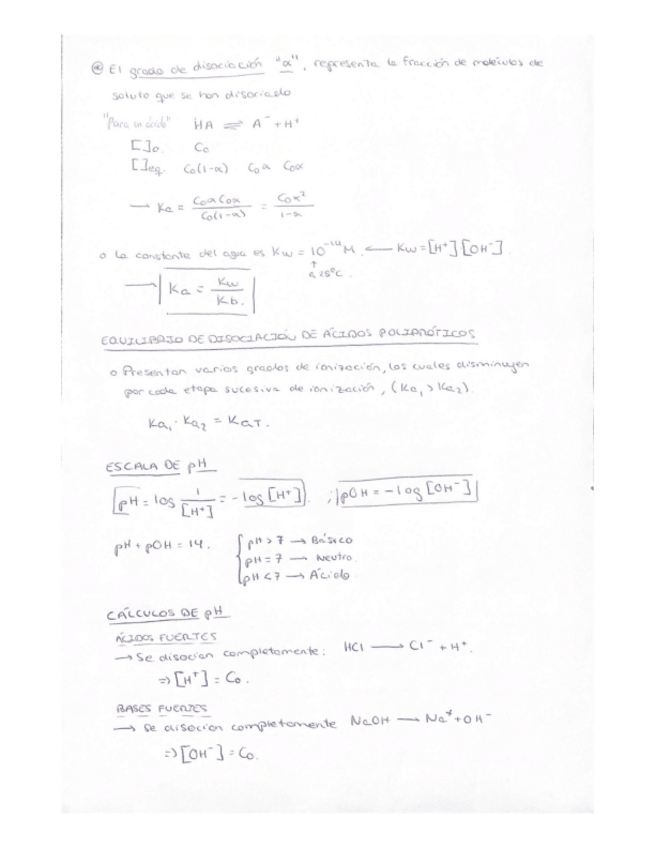 ⊛ El grado de disociación "α", representa la fracción de moléculas de
soluto que se han disociado
"Para un ácido" HA ⇌ A⁻ + H⁺
[ ]₀. C₀
[ ]eq. C₀(1-α) C₀α C₀α
→ Ka = C₀α C₀α / C₀(1-α) = C₀α² / 1-α
o La constante del agua es Kw = 10⁻¹⁴ M. ← Kw = [H⁺]·[OH⁻]
↑
a 25°C.
→ Ka = Kw / Kb.
EQUILIBRIO DE DISOCIACIÓN DE ÁCIDOS POLIPRÓTICOS
o Presentan varios grados de ionización, los cuales disminuyen
por cada etapa sucesiva de ionización, (Ka₁ > Ka₂).
Ka₁ · Ka₂ = KaT.
ESCALA DE pH
pH = log 1 / [H⁺] = -log [H⁺]. ; pOH = -log [OH⁻]
pH + pOH = 14. { pH > 7 → Básico
pH = 7 → Neutro.
pH < 7 → Ácido
CÁLCULOS DE pH
ÁCIDOS FUERTES
→ Se disocian completamente: HCl → Cl⁻ + H⁺.
⇒ [H⁺] = C₀.
BASES FUERTES
→ Se disocian completamente NaOH → Na⁺ + OH⁻
⇒ [OH⁻] = C₀.